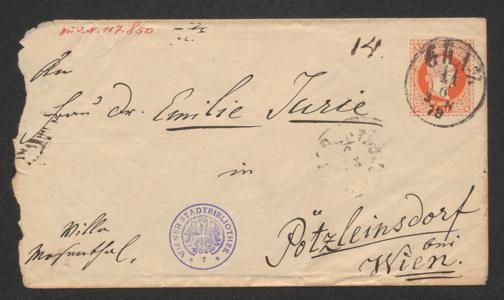 J.N. 117.850
14.
GRAZ
14
6
79
An
Frau Dr. Emilie Turié
in
Villa
Mosenthal.
Pötzleinsdorf
bei
Wien.
WIENER STADTBIBLIOTHEK
7